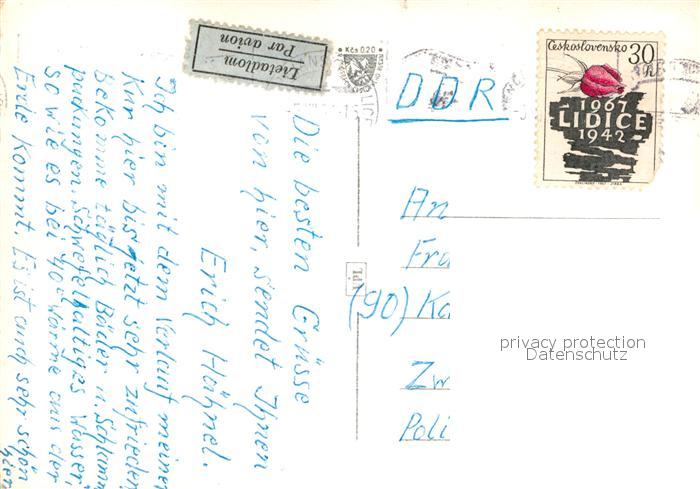 Lietadlom
Par avion
Kčs 0.20
Československo
30 h
1967
LIDICE
1942
DDR
An
Fra
(90) Ka
Zw
Poli
privacy protection
Datenschutz
APL
Die besten Grüsse
von hier, sendet Ihnen
Erich Hähnel.
Ich bin mit dem Verlauf meiner
Kur hier bis jetzt sehr zufrieden
Bekomme täglich Bäder u. Schlamm
packungen. Schwefelhaltiges Wasser,
so wie es bei 40° Wärme aus der
Erde kommt. Es ist auch sehr schön
hier